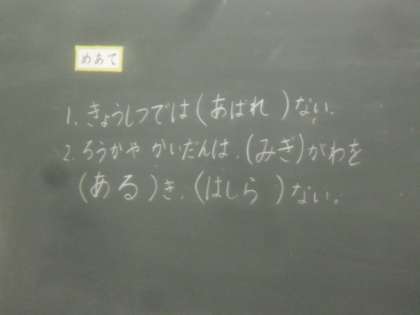 めあて
1. きょうしつでは(あばれ)ない.
2. ろうかや かいだんは、(みぎ)がわを
(ある)き、(はしら)ない。